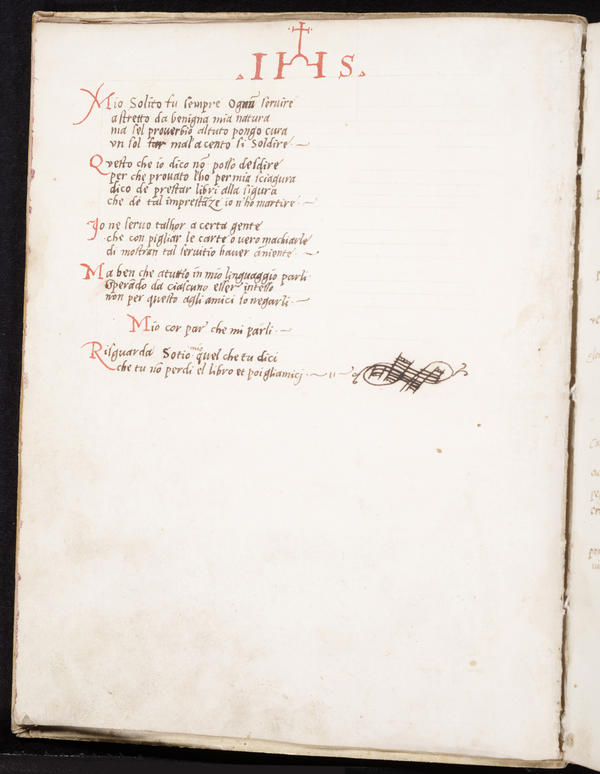 .IHS.
Mio Solito fu sempre Ognũ servire
astretto da benigna mia natura
ma sel proverbio al tuto pongo cura
vn sol far mal a cento si Soldire
Questo che io dico nõ posso desdire
per che provato lho per mia sciagura
dico de prestar libri alla sigura
che de tal imprestãze io n'hò martire
Io ne servo talhor a certa gente
che con pigliar le carte o vero machiarle
di mostran tal servitio haver aniente
Ma ben che a tutto in mio linguaggio parli
sperādo da ciascuno esser inteso
non per questo agli amici io negarli
Mio cor par che mi parli
Risguarda Sotio mio quel che tu dici
che tu nõ perdi el libro et poi gli amici